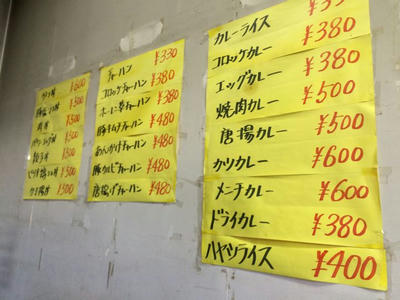 ¥600
¥500
¥500
¥500
¥500
¥500
¥500
チャーハン ¥330
コロッケチャーハン ¥380
ホーレン草チャーハン ¥380
豚キムチチャーハン ¥480
あんかけチャーハン ¥480
豚カルビチャーハン ¥480
唐揚げチャーハン ¥480
カレーライス
コロッケカレー ¥380
エッグカレー ¥380
焼肉カレー ¥500
唐揚カレー ¥500
カツカレー ¥600
メンチカレー ¥600
ドライカレー ¥380
ハヤシライス ¥400